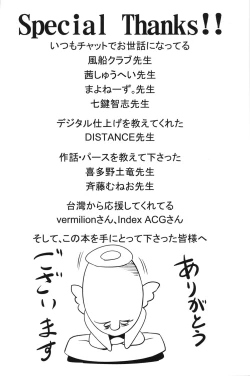 Special Thanks!!
いつもチャットでお世話になってる
風船クラブ先生
茜しゅうへい先生
まよねーず。先生
七鍵智志先生
デジタル仕上げを教えてくれた
DISTANCE先生
作話・パースを教えて下さった
喜多野土竜先生
斉藤むねお先生
台湾から応援してくれてる
vermilionさん、Index ACGさん
そして、この本を手にとって下さった皆様へ
ありがとう
ございます